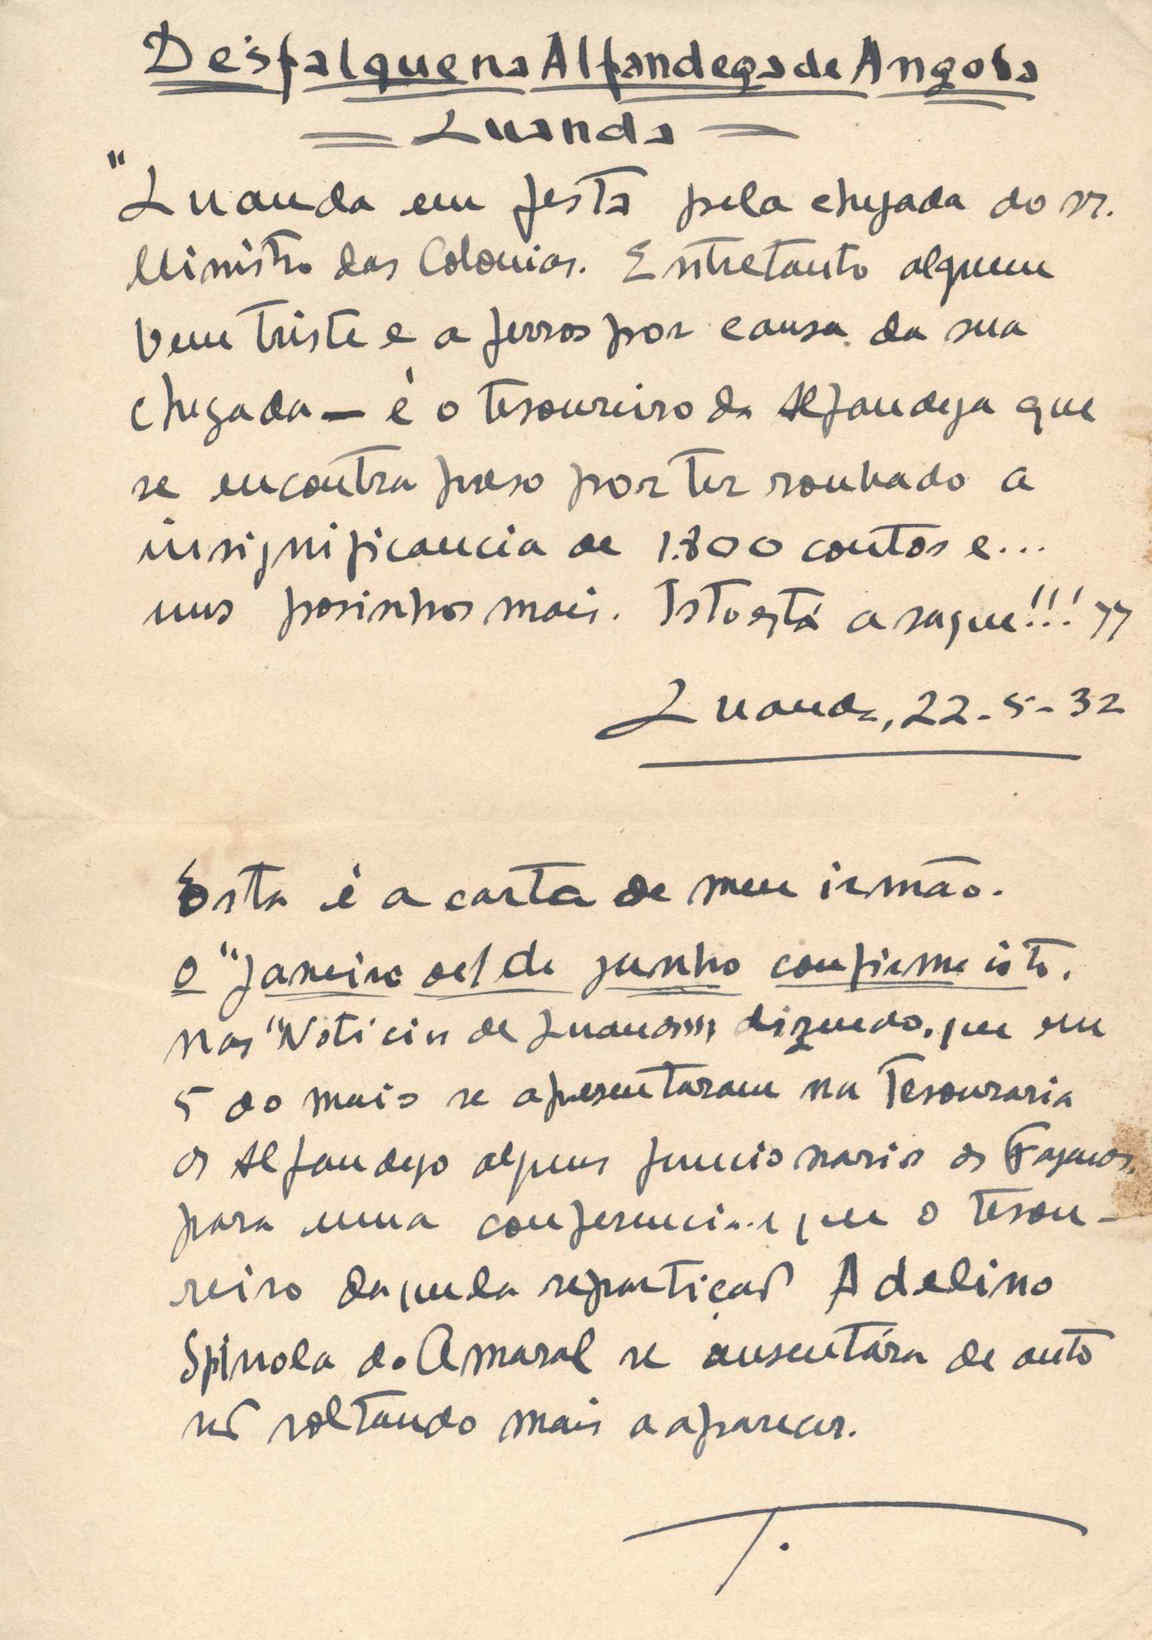 Desfalque na Alfandega de Angola
Luanda
"Luanda em festa pela chegada do sr.
Ministro das Colonias. Entretanto alguem
vem triste e a ferros por causa da sua
chegada — é o tesoureiro da Alfandega que
se encontra preso por ter roubado a
insignificancia de 1.800 contos e...
uns posinhos mais. Isto está a saque!!!"
Luanda, 22-5-32
Esta é a carta de meu irmão.
O "Janeiro de 1 de junho confirma isto.
nas "Noticias de Luanda", dizendo, que em
5 do maio se apresentaram na Tesouraria
da Alfandega alguns funcionarios da Fazenda,
para uma conferencia e que o tesou-
reiro daquela repartição Adelino
Spinola do Amaral se ausentára de auto
nõ voltando mais a aparecer.
T.